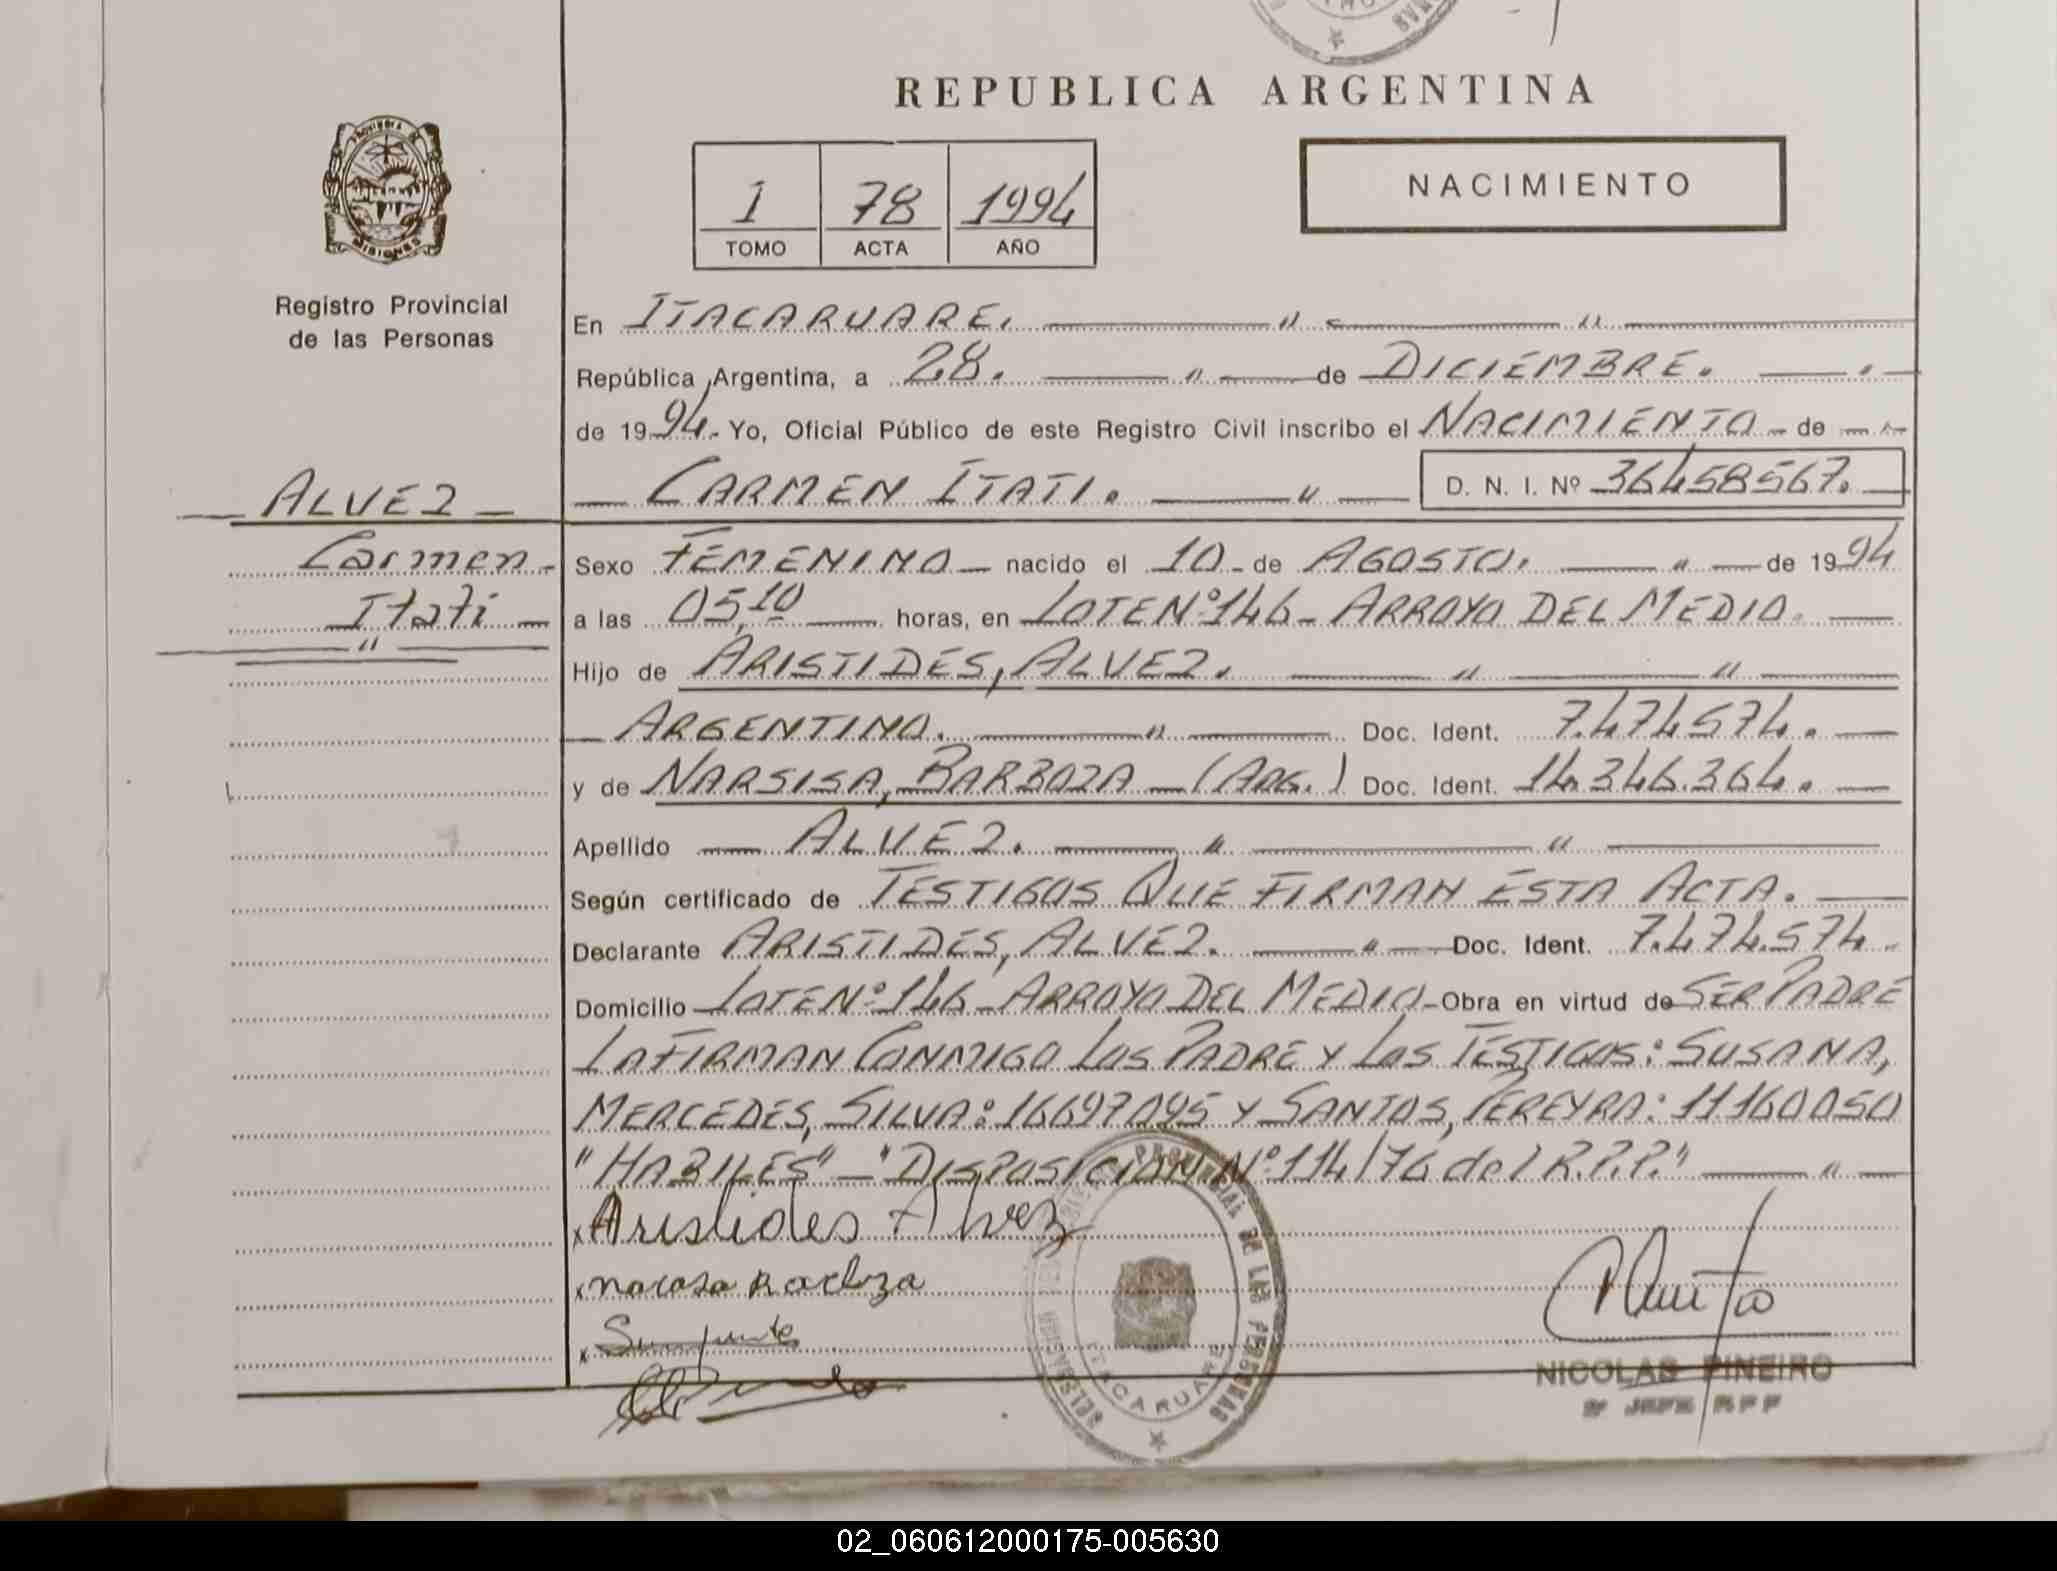 REPUBLICA ARGENTINA
1 78 1994
TOMO ACTA AÑO
NACIMIENTO
PROVINCIA DE
MISIONES
Registro Provincial
de las Personas
En ITACARUARE. " "
República Argentina, a 28. " de DICIEMBRE. "
de 1994.- Yo, Oficial Público de este Registro Civil inscribo el NACIMIENTO - de
CARMEN ITATI. " D. N. I. Nº 36458567.
ALVEZ
Carmen
Itati
"
Sexo FEMENINO nacido el 10 de AGOSTO. " de 1994
a las 05,10 horas, en LOTE Nº 146 - ARROYO DEL MEDIO.
Hijo de ARISTIDES, ALVEZ. " "
ARGENTINO. " Doc. Ident. 7.474574.
y de NARSISA, BARBOZA (ARG.) Doc. Ident. 14.346.364.
Apellido ALVEZ. " "
Según certificado de TESTIGOS QUE FIRMAN ESTA ACTA.
Declarante ARISTIDES, ALVEZ. " Doc. Ident. 7.474.574
Domicilio LOTE Nº 146 - ARROYO DEL MEDIO - Obra en virtud de SER PADRE
LA FIRMAN CONMIGO LOS PADRE Y LOS TESTIGOS: SUSANA,
MERCEDES, SILVA: 16697095 Y SANTOS, PEREYRA: 11160050
"HABILES" - "DISPOSICION Nº 114/76 del R.P.P." "
x Aristides Alvez
x
x
PROVINCIAL DE LAS PERSONAS
ITACARUARE
NICOLAS PINEIRO
JEFE RPP
02_060612000175-005630